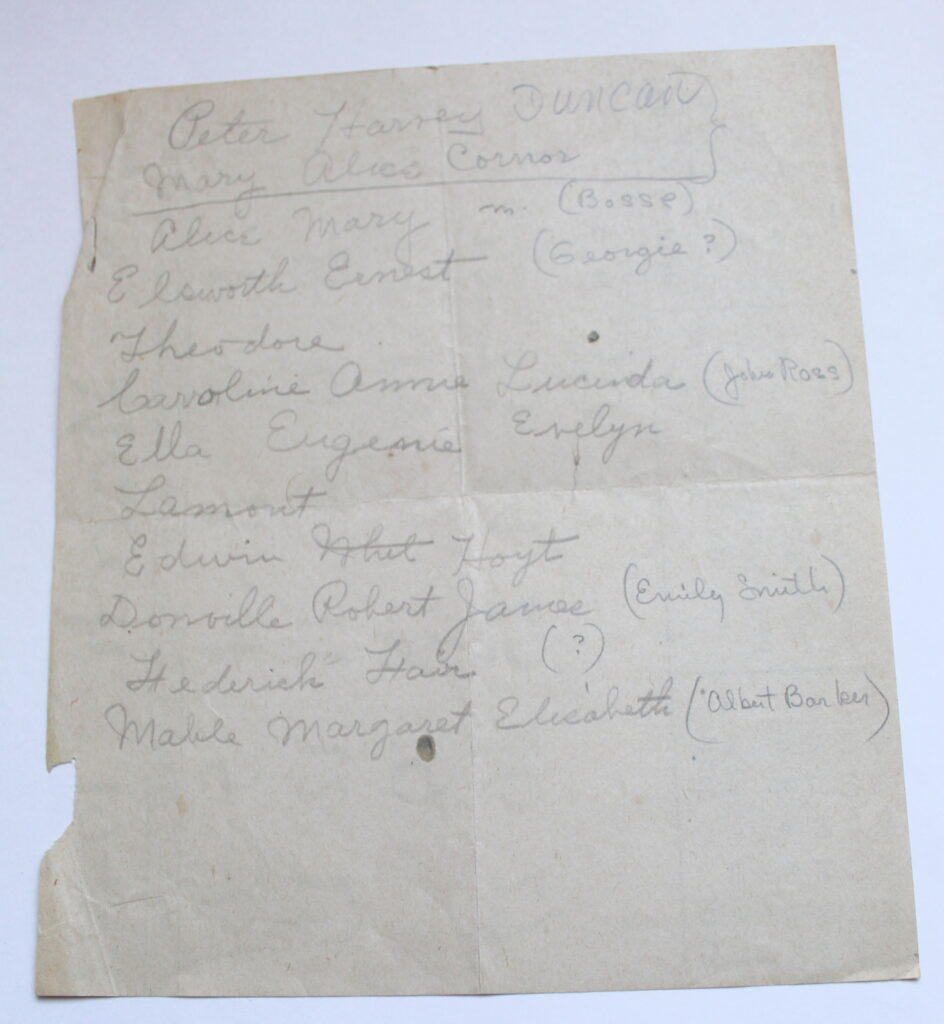 Peter Harvey Duncan
Mary Alice Connor
Alice Mary m. (Bosse)
Elsworth Ernest (Georgie ?)
Theodore
Caroline Annie Lucinda (John Ross)
Ella Eugenie Evelyn
Lamont
Edwin Whit Hoyt
Donville Robert James (Emily Smith)
Hederick Hair (?)
Mable Margaret Elisabeth (Albert Barker)